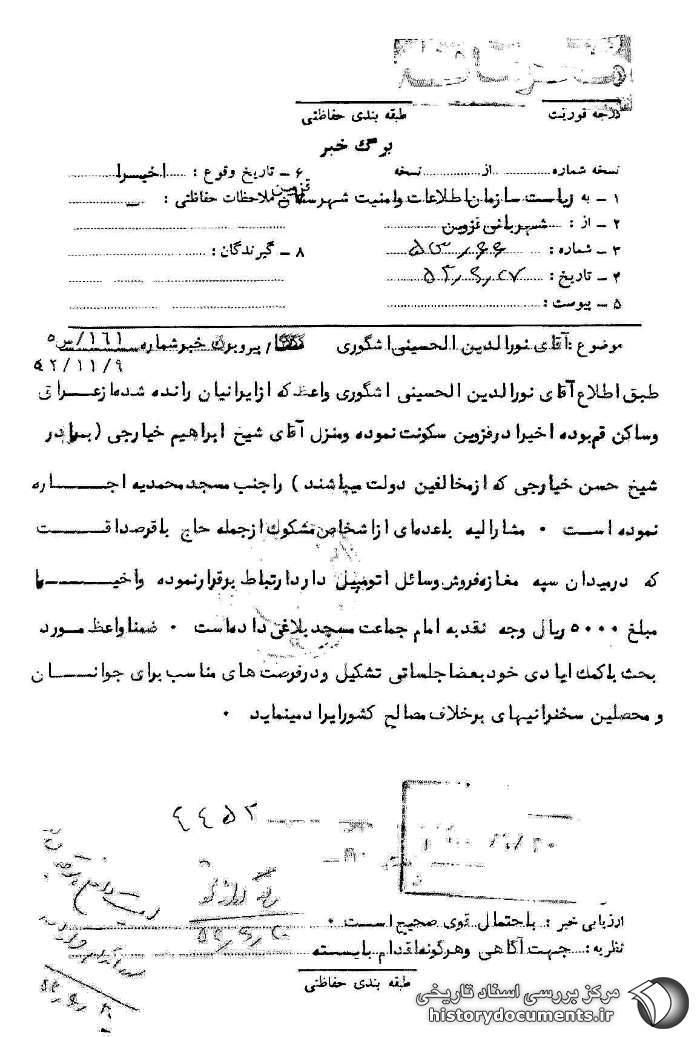 درجه فوریت
طبقه بندی حفاظتی
برگ خبر
نسخه شماره از نسخه
۶ – تاریخ وقوع : اخیرا
۱ – به ریاست سازمان اطلاعات و امنیت شهرستان قزوین
ملاحظات حفاظتی :
۲ – از : شهربانی قزوین
۳ – شماره :
۸ – گیرندگان :
۴ – تاریخ :
۵ – پیوست :
موضوع : آقای نورالدین الحسینی اشگوری
پیرو برگ خبر شماره ۱۶۱/س۵
۵۲/۱۱/۹
طبق اطلاع آقای نورالدین الحسینی اشگوری واعظ که از ایرانیان رانده شده از عراقی
و ساکن قم بوده اخیرا در قزوین سکونت نموده و منزل آقای شیخ ابراهیم خیارجی (برادر
شیخ حسن خیارجی که از مخالفین دولت میباشند ) را جنب مسجد محمدیه اجاره
نموده است ۰ مشارالیه با عده‌ای از اشخاص مشکوک از جمله حاج باقر صداقت
که در میدان سپه مغازه فروش وسائل اتومبیل دارد ارتباط برقرار نموده و اخیرا
مبلغ ۵۰۰۰ ریال وجه نقد به امام جماعت مسجد بلاغی داده است ۰ ضمنا واعظ مورد
بحث با کمک ایادی خود بعضا جلساتی تشکیل و در فرصت های مناسب برای جوانان
و محصلین سخنرانیهای بر خلاف مصالح کشور ایراد مینماید ۰
۴۴۵۲
ارزیابی خبر : باحتمال قوی صحیح است ۰
نظریه : جهت آگاهی و هرگونه اقدام بایسته
طبقه بندی حفاظتی
مرکز بررسی اسناد تاریخی
historydocuments.ir